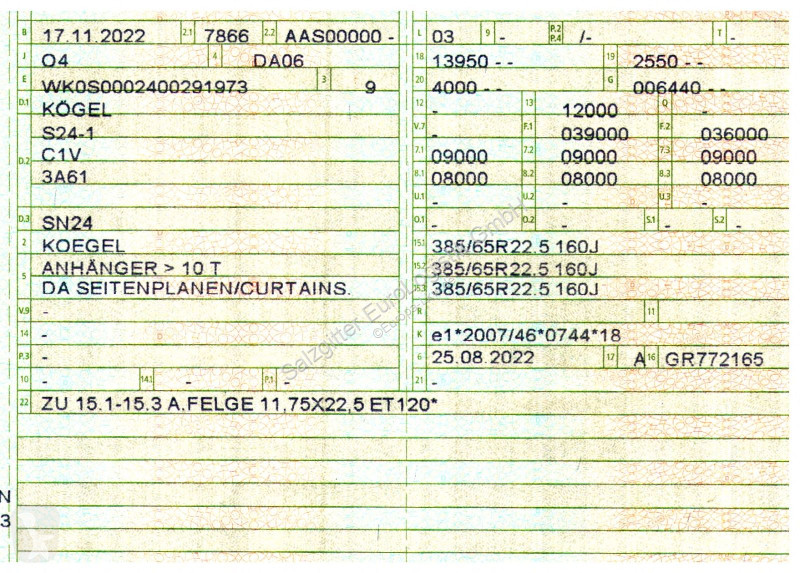 B 17.11.2022 2.1 7866 2.2 AAS00000 -
J O4 4 DA06
E WK0S0002400291973 3 9
D.1 KÖGEL
D.2 S24-1
C1V
3A61
D.3 SN24
2 KOEGEL
5 ANHÄNGER > 10 T
DA SEITENPLANEN/CURTAINS.
V.9 -
14 -
P.3 -
10 - 14.1 - P.1 -
L 03 9 - P.2 P.4 /- T -
18 13950 - - 19 2550 - -
20 4000 - - G 006440 - -
12 - 13 12000 Q -
V.7 - F.1 039000 F.2 036000
7.1 09000 7.2 09000 7.3 09000
8.1 08000 8.2 08000 8.3 08000
U.1 - U.2 - U.3 -
O.1 - O.2 - S.1 - S.2 -
15.1 385/65R22.5 160J
15.2 385/65R22.5 160J
15.3 385/65R22.5 160J
R - 11 -
K e1*2007/46*0744*18
6 25.08.2022 17 A 16 GR772165
21 -
22 ZU 15.1-15.3 A.FELGE 11,75X22,5 ET120*
N
3
Salzgitter GmbH